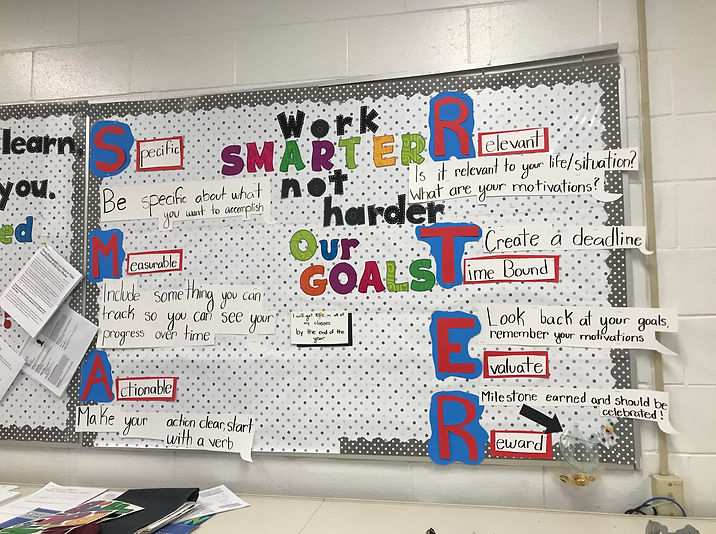 learn,
you.
ed
Work
SMARTER
not
harder
Our
GOALS
Specific
Be specific about what
you want to accomplish
Measurable
Include something you can
track so you can see your
progress over time
Actionable
Make your action clear, start
with a verb
I will get 85% in all of
my classes
by the end of the
year
Relevant
Is it relevant to your life/situation?
What are your motivations?
Create a deadline
Time Bound
Look back at your goals,
remember your motivations
Evaluate
Milestone earned and should be
celebrated!
Reward